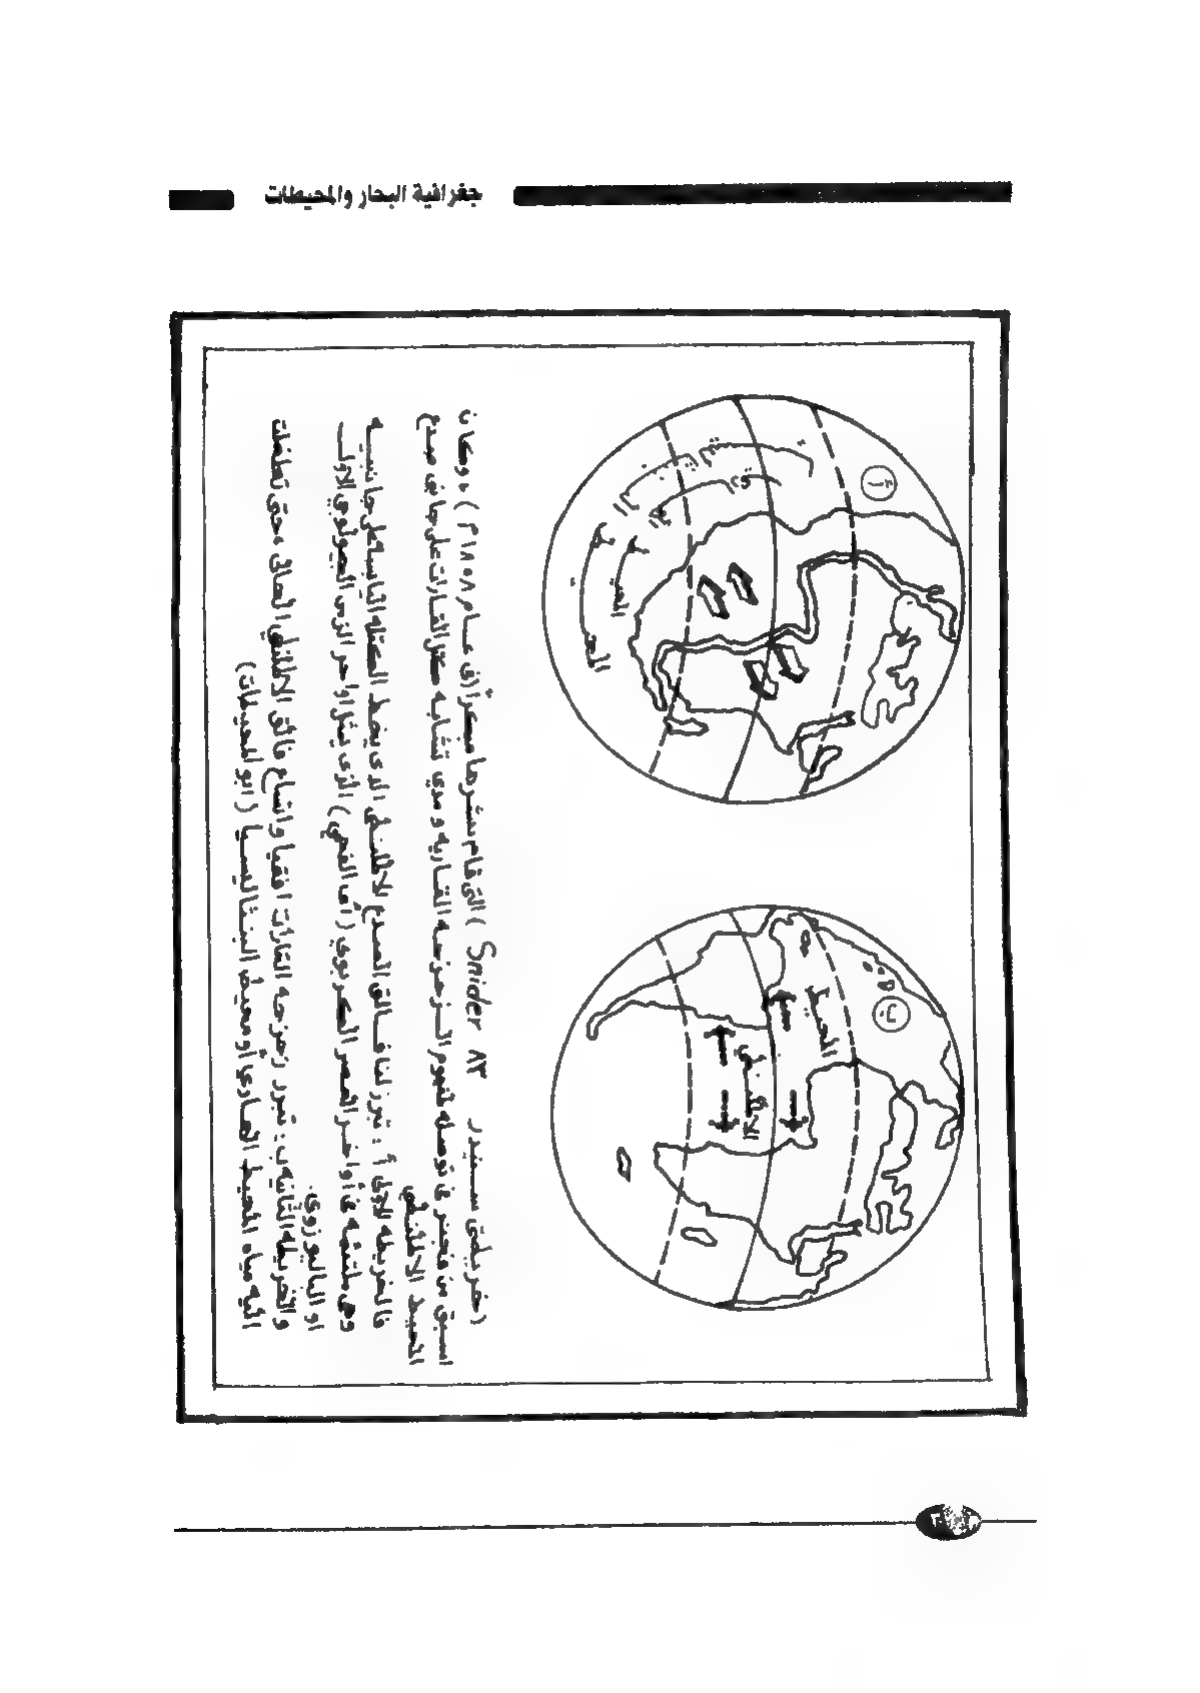 جغرافية البحار والمحيطات
أ
ب
المحيط
الاطلنطى
(خريطتى سنيدر Snider ٨٣ ) التى قام بنشرها مبكراً (فى عام ١٨٥٨ م ) ، وكان
اسبق من فجنر فى توصله لمفهوم الزحزحه القاريه ومدى تشابه كتل القارات على جانبى صدع
المحيط الاطلنطى
فالخريطه الاولى أ : تبرز لنا فالق الصدع الاطلنطى الذى يخط الكتله اليابسه على جانبيه
وهى ملتئمه فى أواخر العصر الكربوى (أى الفحمى) الذى يمثل اواخر الزمن الجيولوجى الاول
او الباليوزوى.
والخريطه الثانيه ب: تبرز زحزحه القارات افقيا واتساع فالق الاطلنطى الحالى ، حتى تطغلت
اليه مياه المحيط الهادى أو محيط البنثاليسيا (ابو المحيطات)